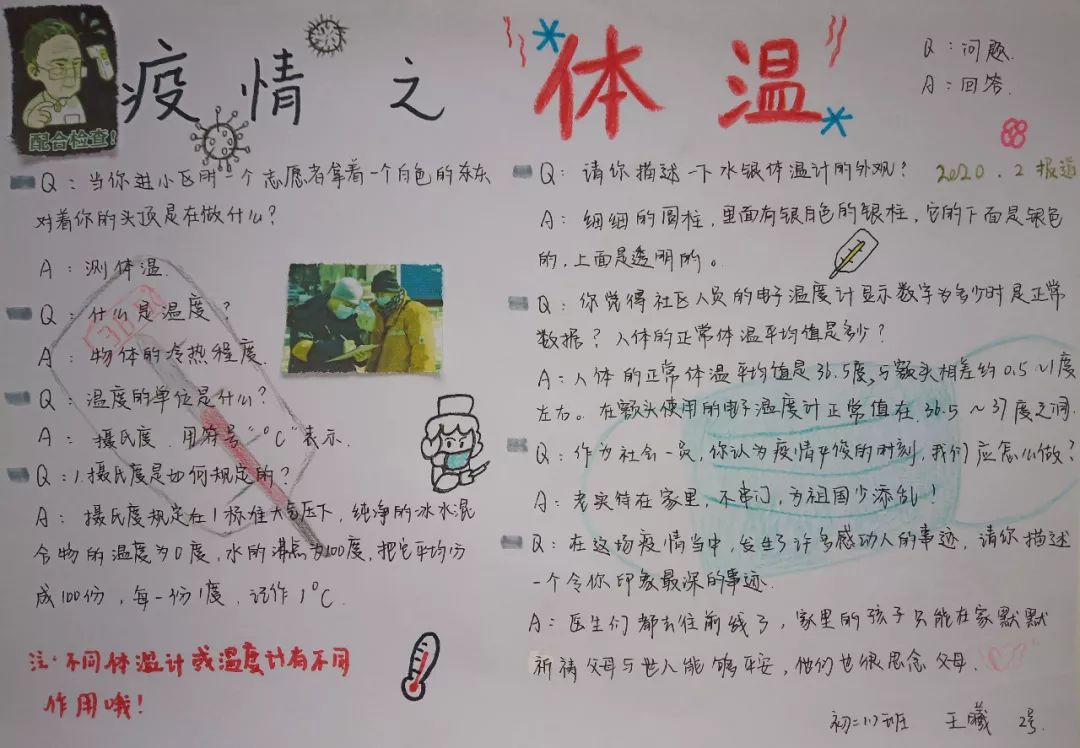 疫情之
体温
Q：问题.
A：回答.
配合检查！
Q：当你进小区时一个志愿者拿着一个白色的东东
对着你的头顶是在做什么？
A：测体温.
Q：什么是温度？
A：物体的冷热程度.
Q：温度的单位是什么？
A：摄氏度.用符号“℃”表示.
Q：1.摄氏度是如何规定的？
A：摄氏度规定在1标准大气压下，纯净的冰水混
合物的温度为0度，水的沸点为100度，把它平均份
成100份，每一份1度，记作1℃.
注：不同体温计或温度计有不同
作用哦！
Q：请你描述一下水银体温计的外观？
2020.2报道
A：细细的圆柱，里面有银白色的银柱，它的下面是银色
的，上面是透明的。
Q：你觉得社区人员的电子温度计显示数字为多少时是正常
数据？人体的正常体温平均值是多少？
A：人体的正常体温平均值是36.5度，与额头相差约0.5~1度
左右。在额头使用的电子温度计正常值在36.5～37度之间.
Q：作为社会一员，你认为疫情中的时刻，我们应怎么做？
A：老实待在家里，不串门，为祖国少添乱！
Q：在这场疫情当中，发生了许多感动人的事迹，请你描述
一个令你印象最深的事迹.
A：医生们都去往前线了，家里的孩子只能在家默默
祈祷父母与世人能够平安，他们也很思念父母.
初二(1)班 王曦 2号.